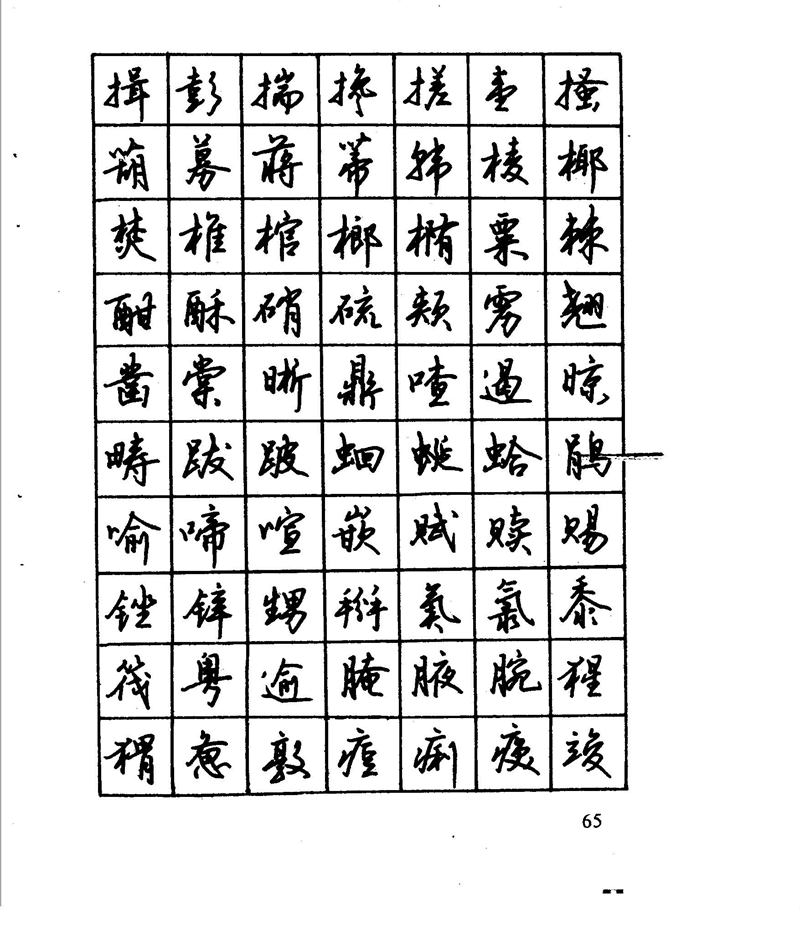 揖彭揣搀搓壹搔
葫募蒋蒂韩棱椰
焚椎棺榔椭粟棘
酣酥硝硫颊雳翘
凿棠晰鼎喳遏晾
畴跋跛蛔蜒蛤鹃
喻啼喧嵌赋赎赐
锉锌甥掰氮氯黍
筏粤逾腌腋腕猩
猬惫敦痘痢痪竣
65